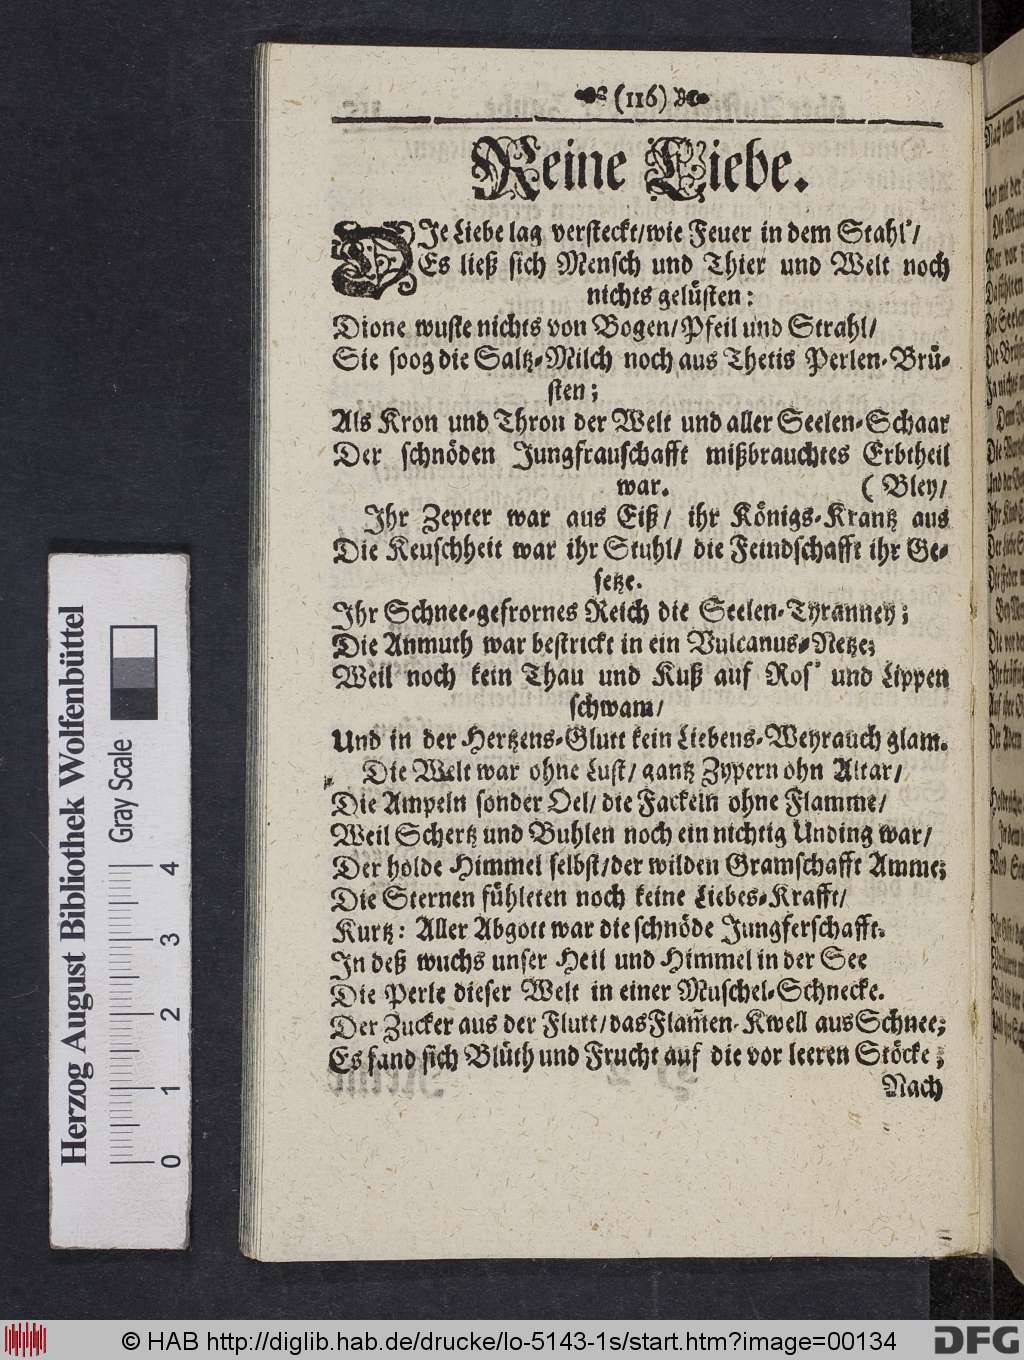 (116)
Reine Liebe.
DIe Liebe lag versteckt/wie Feuer in dem Stahl'/
Es ließ sich Mensch und Thier und Welt noch
nichts gelüsten:
Dione wuste nichts von Bogen/Pfeil und Strahl/
Sie soog die Saltz-Milch noch aus Thetis Perlen-Brü-
sten;
Als Kron und Thron der Welt und aller Seelen-Schaar
Der schnöden Jungfrauschafft mißbrauchtes Erbtheil
war. (Bley/
Ihr Zepter war aus Eiß/ ihr Königs-Krantz aus
Die Keuschheit war ihr Stuhl/ die Feindschafft ihr Ge-
setze.
Ihr Schnee-gefrornes Reich die Seelen-Tyranney;
Die Anmuth war bestrickt in ein Vulcanus-Netze;
Weil noch kein Thau und Kuß auf Ros' und Lippen
schwam/
Und in der Hertzens-Glutt kein Liebens-Weyrauch glam.
Die Welt war ohne Lust/ gantz Zypern ohn Altar/
Die Ampeln sonder Oel/ die Fackeln ohne Flamme/
Weil Schertz und Buhlen noch ein nichtig Unding war/
Der holde Himmel selbst/der wilden Gramschafft Amme;
Die Sternen fühleten noch keine Liebes-Krafft/
Kurtz: Aller Abgott war die schnöde Jungferschafft.
In deß wuchs unser Heil und Himmel in der See
Die Perle dieser Welt in einer Muschel-Schnecke.
Der Zucker aus der Flutt/das Flam̃en-Kwell aus Schnee;
Es fand sich Blüth und Frucht auf die vor leeren Stöcke;
Nach
Herzog August Bibliothek Wolfenbüttel
Gray Scale
0 1 2 3 4
© HAB http://diglib.hab.de/drucke/lo-5143-1s/start.htm?image=00134
DFG